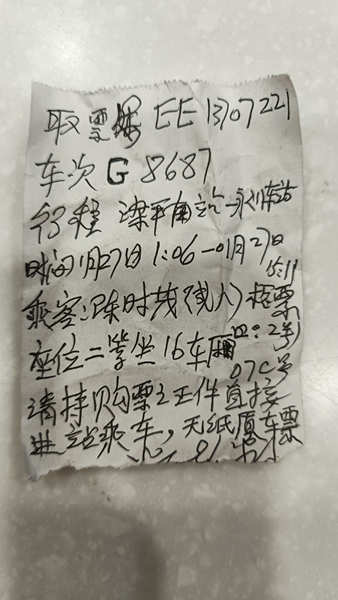 取票号 EE1307221
车次 G 8687
行程 梁平南站-永川东站
时间 1月27日 1:06-01月27日
15:11
乘客:陈时线(成人) 检票
口:2号
座位二等坐 16车厢
07C号
请持购票之证件直接
进站乘车,无纸质车票